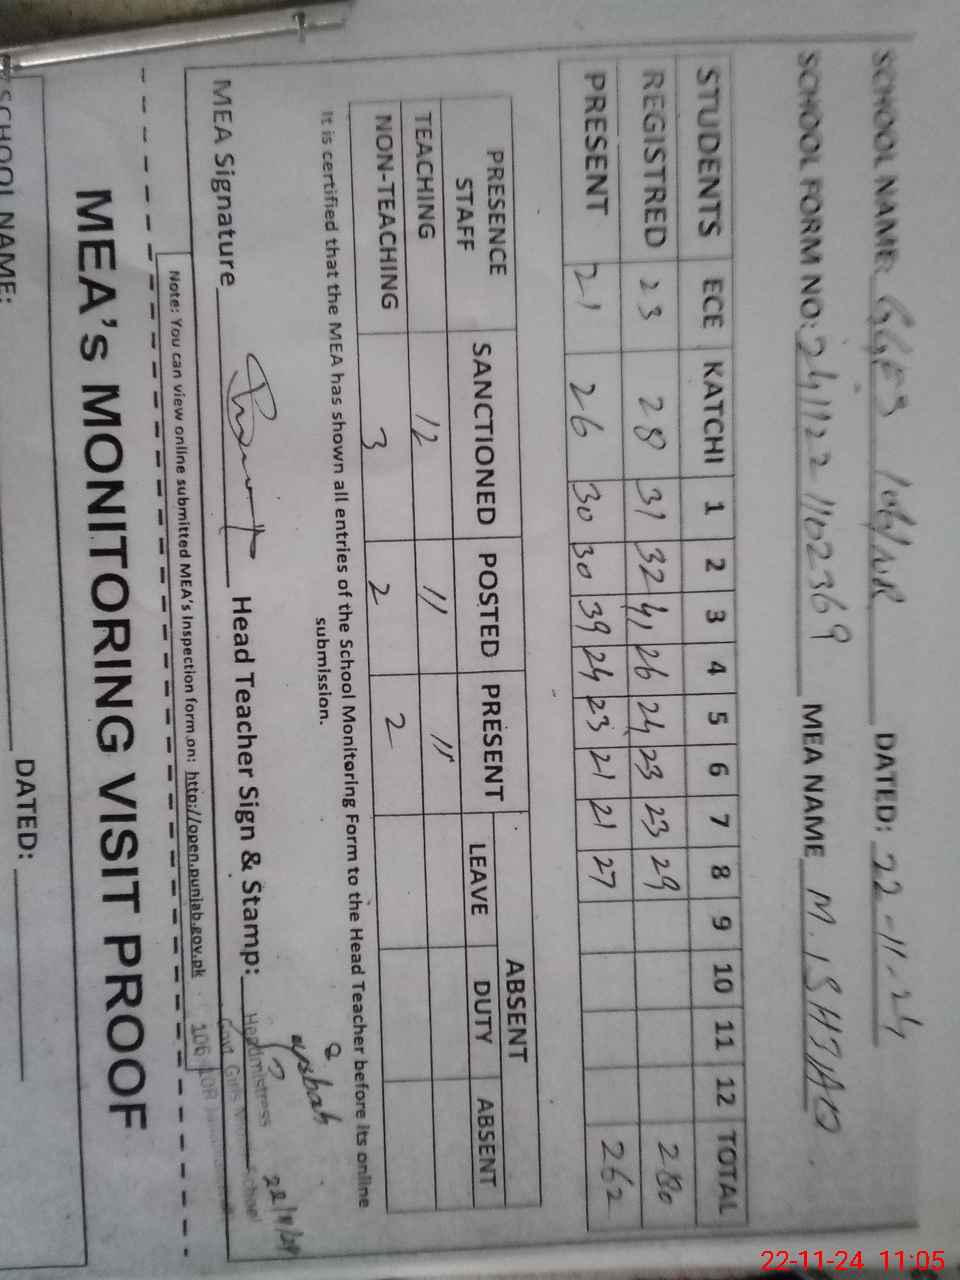 SCHOOL NAME: GGES 106/10R DATED: 22-11-24
SCHOOL FORM NO: 241122-1102369 MEA NAME M. ISHTIAQ
STUDENTS ECE KATCHI 1 2 3 4 5 6 7 8 9 10 11 12 TOTAL
REGISTRED 23 28 31 32 41 26 24 23 23 29 280
PRESENT 21 26 30 30 39 24 23 21 21 27 262
PRESENCE STAFF SANCTIONED POSTED PRESENT ABSENT
LEAVE DUTY ABSENT
TEACHING 12 11 11
NON-TEACHING 3 2 2
It is certified that the MEA has shown all entries of the School Monitoring Form to the Head Teacher before its online
submission.
MEA Signature Head Teacher Sign & Stamp:
Headmistress
Govt. Girls School
106 10R
22/11/24
Note: You can view online submitted MEA's Inspection form on: http://open.punjab.gov.pk
MEA's MONITORING VISIT PROOF
SCHOOL NAME: DATED:
22-11-24 11:05